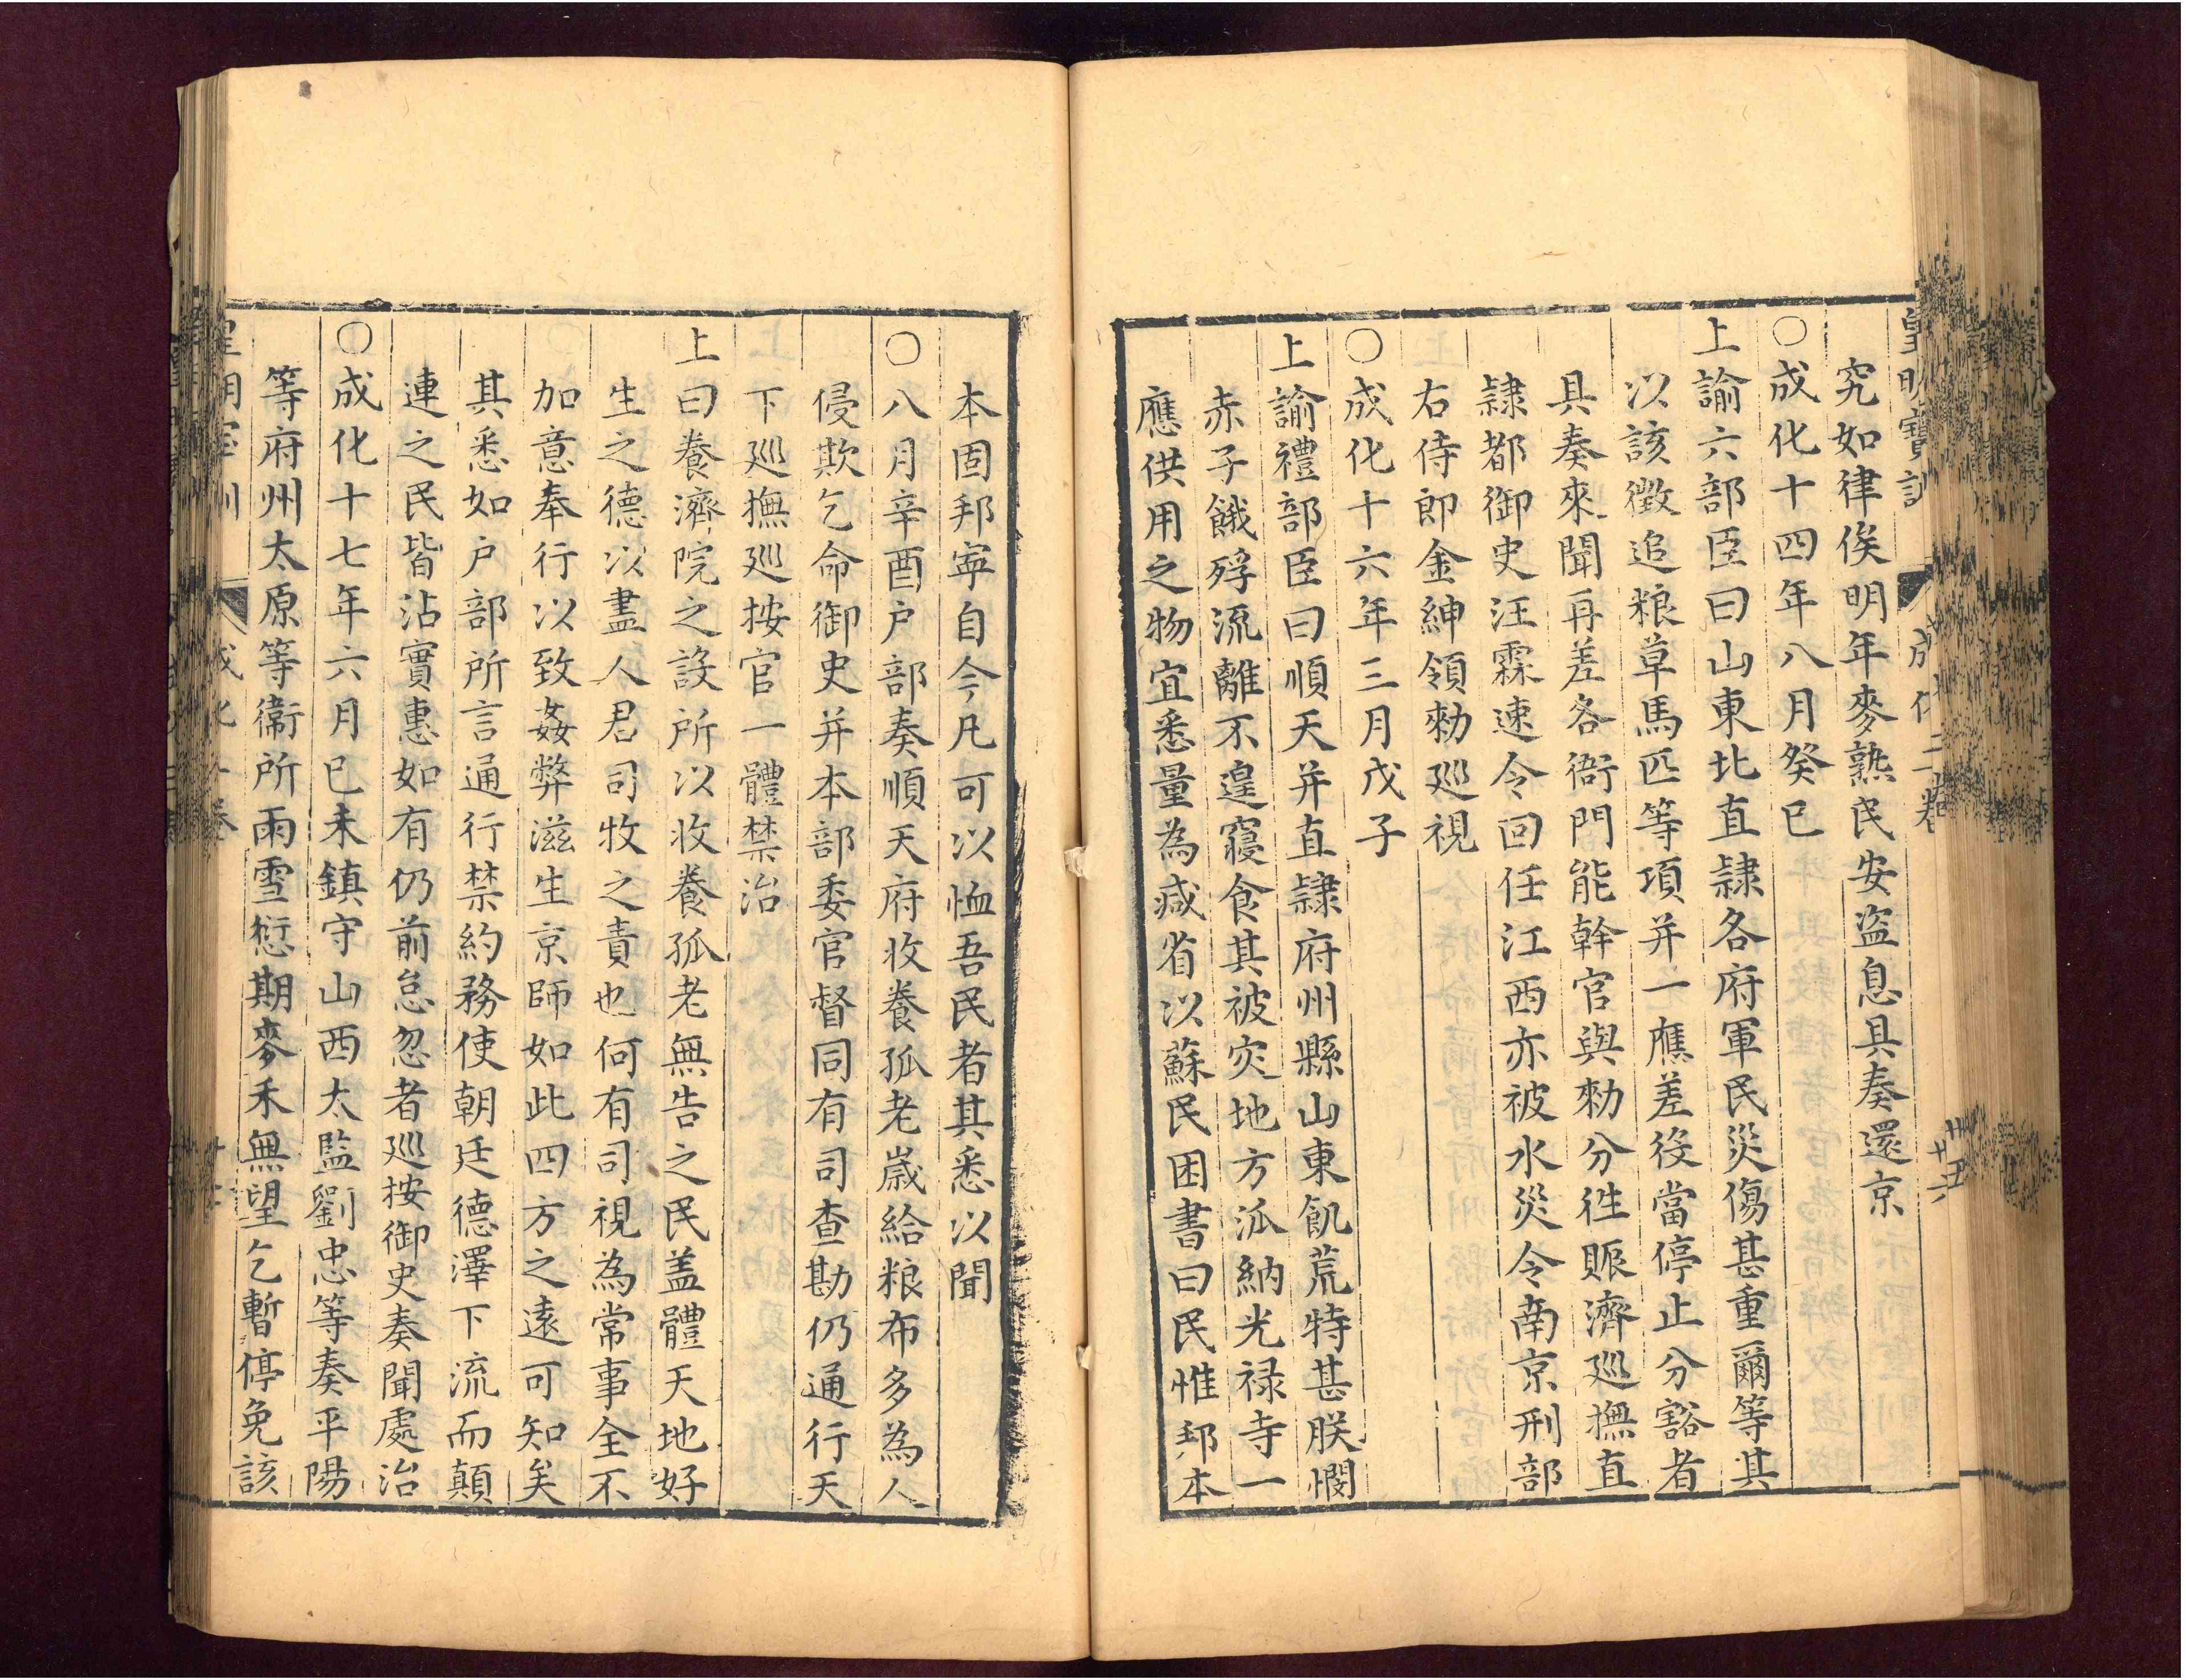 皇明寶訓 成化二卷
究如律俟明年麥熟民安盜息具奏還京
○成化十四年八月癸巳
上諭六部臣曰山東北直隸各府軍民災傷甚重爾等其
以該徵追粮草馬匹等項并一應差役當停止分豁者
具奏來聞再差各衙門能幹官與勑分徃賑濟巡撫直
隸都御史汪霖速令回任江西亦被水災令南京刑部
右侍郎金紳領勑廵視
○成化十六年三月戊子
上諭禮部臣曰順天并直隸府州縣山東飢荒特甚朕憫
赤子餓殍流離不遑寢食其被灾地方泒納光禄寺一
應供用之物宜悉量為减省以蘇民困書曰民惟邦本
本固邦寧自今凡可以恤吾民者其悉以聞
○八月辛酉户部奏順天府收養孤老歲給粮布多為人
侵欺乞命御史并本部委官督同有司查勘仍通行天
下廵撫廵按官一體禁治
上曰養濟院之設所以收養孤老無告之民盖體天地好
生之德以盡人君司牧之責也何有司視為常事全不
加意奉行以致姦弊滋生京師如此四方之遠可知矣
其悉如户部所言通行禁約務使朝廷德澤下流而顛
連之民皆沾實惠如有仍前怠忽者廵按御史奏聞處治
○成化十七年六月已未鎮守山西太監劉忠等奏平陽
等府州太原等衞所雨雪愆期麥禾無望乞暫停免該